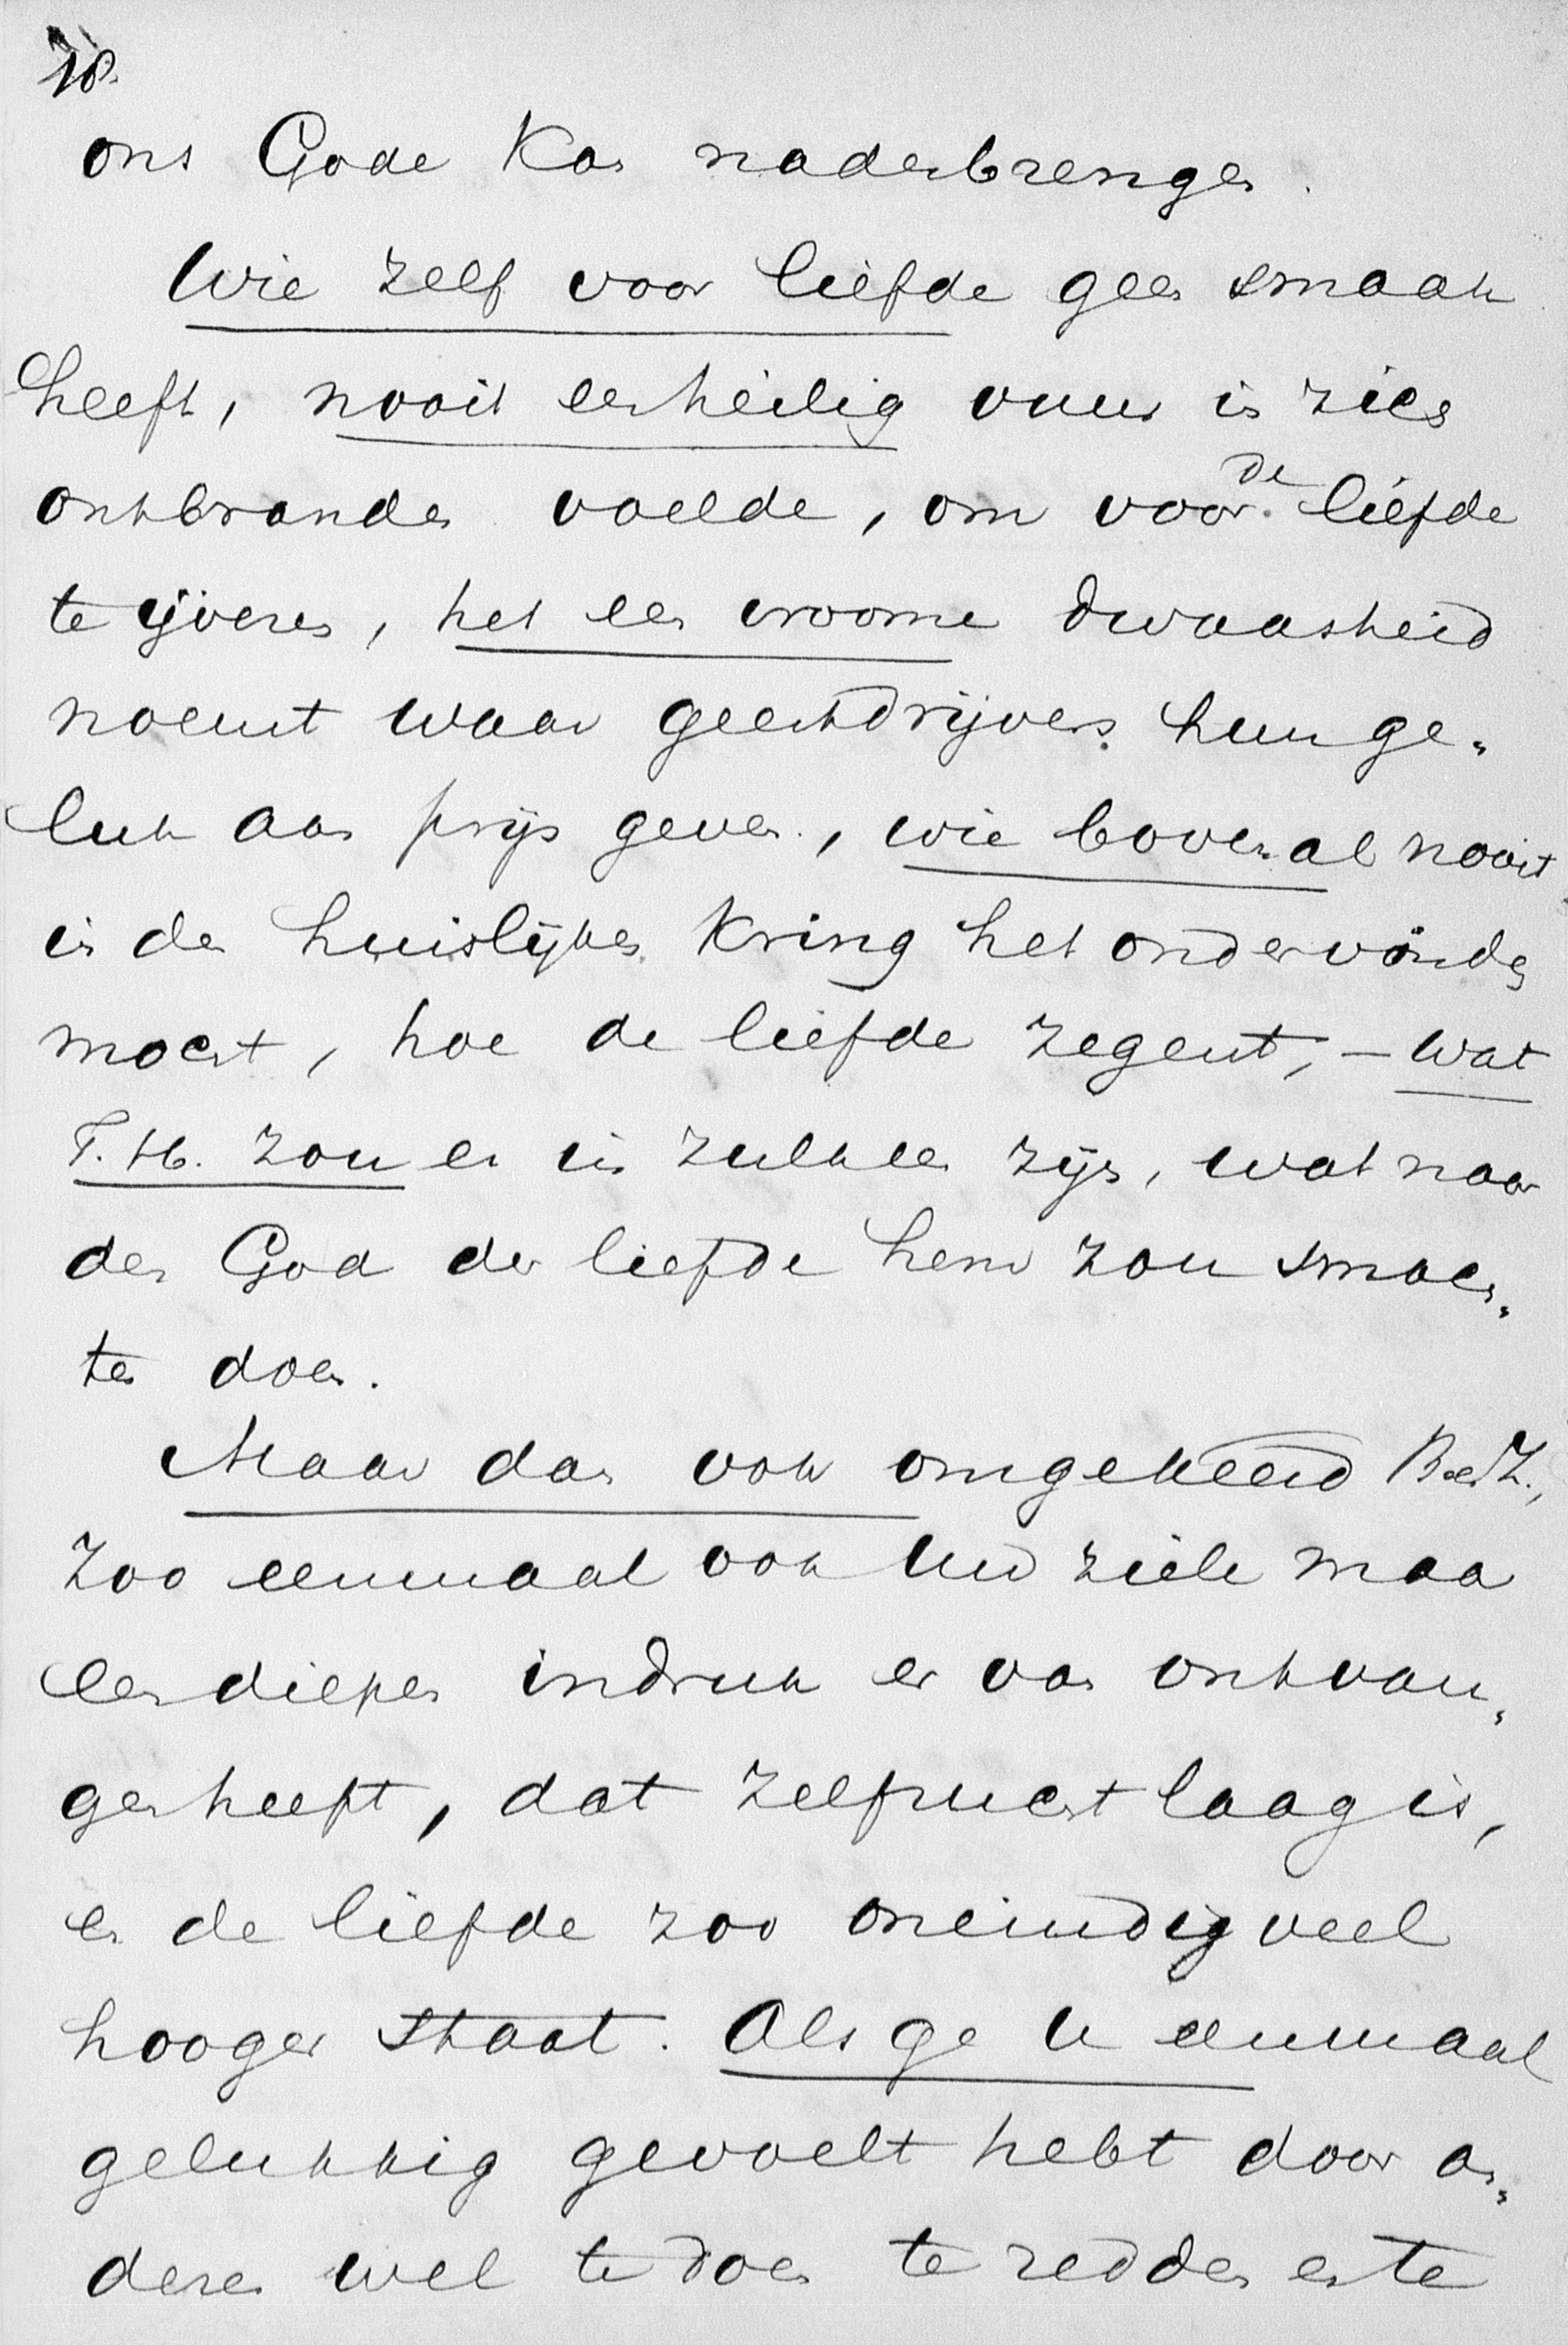 18.
ons Gode kan naderbrengen.
Wie zelf voor liefde geen smaak
heeft, nooit een heilig vuur in zich
ontbranden voelde, om voor de liefde
te ijveren, het een vroome dwaasheid
noemt waar geestdrijvers hun ge-
luk aan prijs geven, wie bovenal nooit
in den huislijken kring het ondervinden
mocht, hoe de liefde zegent, – wat
T. H. zou er in zulk een zijn, wat naar
den God der liefde hem zou smach-
ten doen.
Maar dan ook omgekeerd B. en Z.,
zoo eenmaal ook uw ziele maar
een diepen indruk er van ontvan-
gen heeft, dat zelfzucht laag is,
en de liefde zoo oneindig veel
hooger staat. Als ge U eenmaal
gelukkig gevoelt hebt door an-
deren wel te doen te redden en te